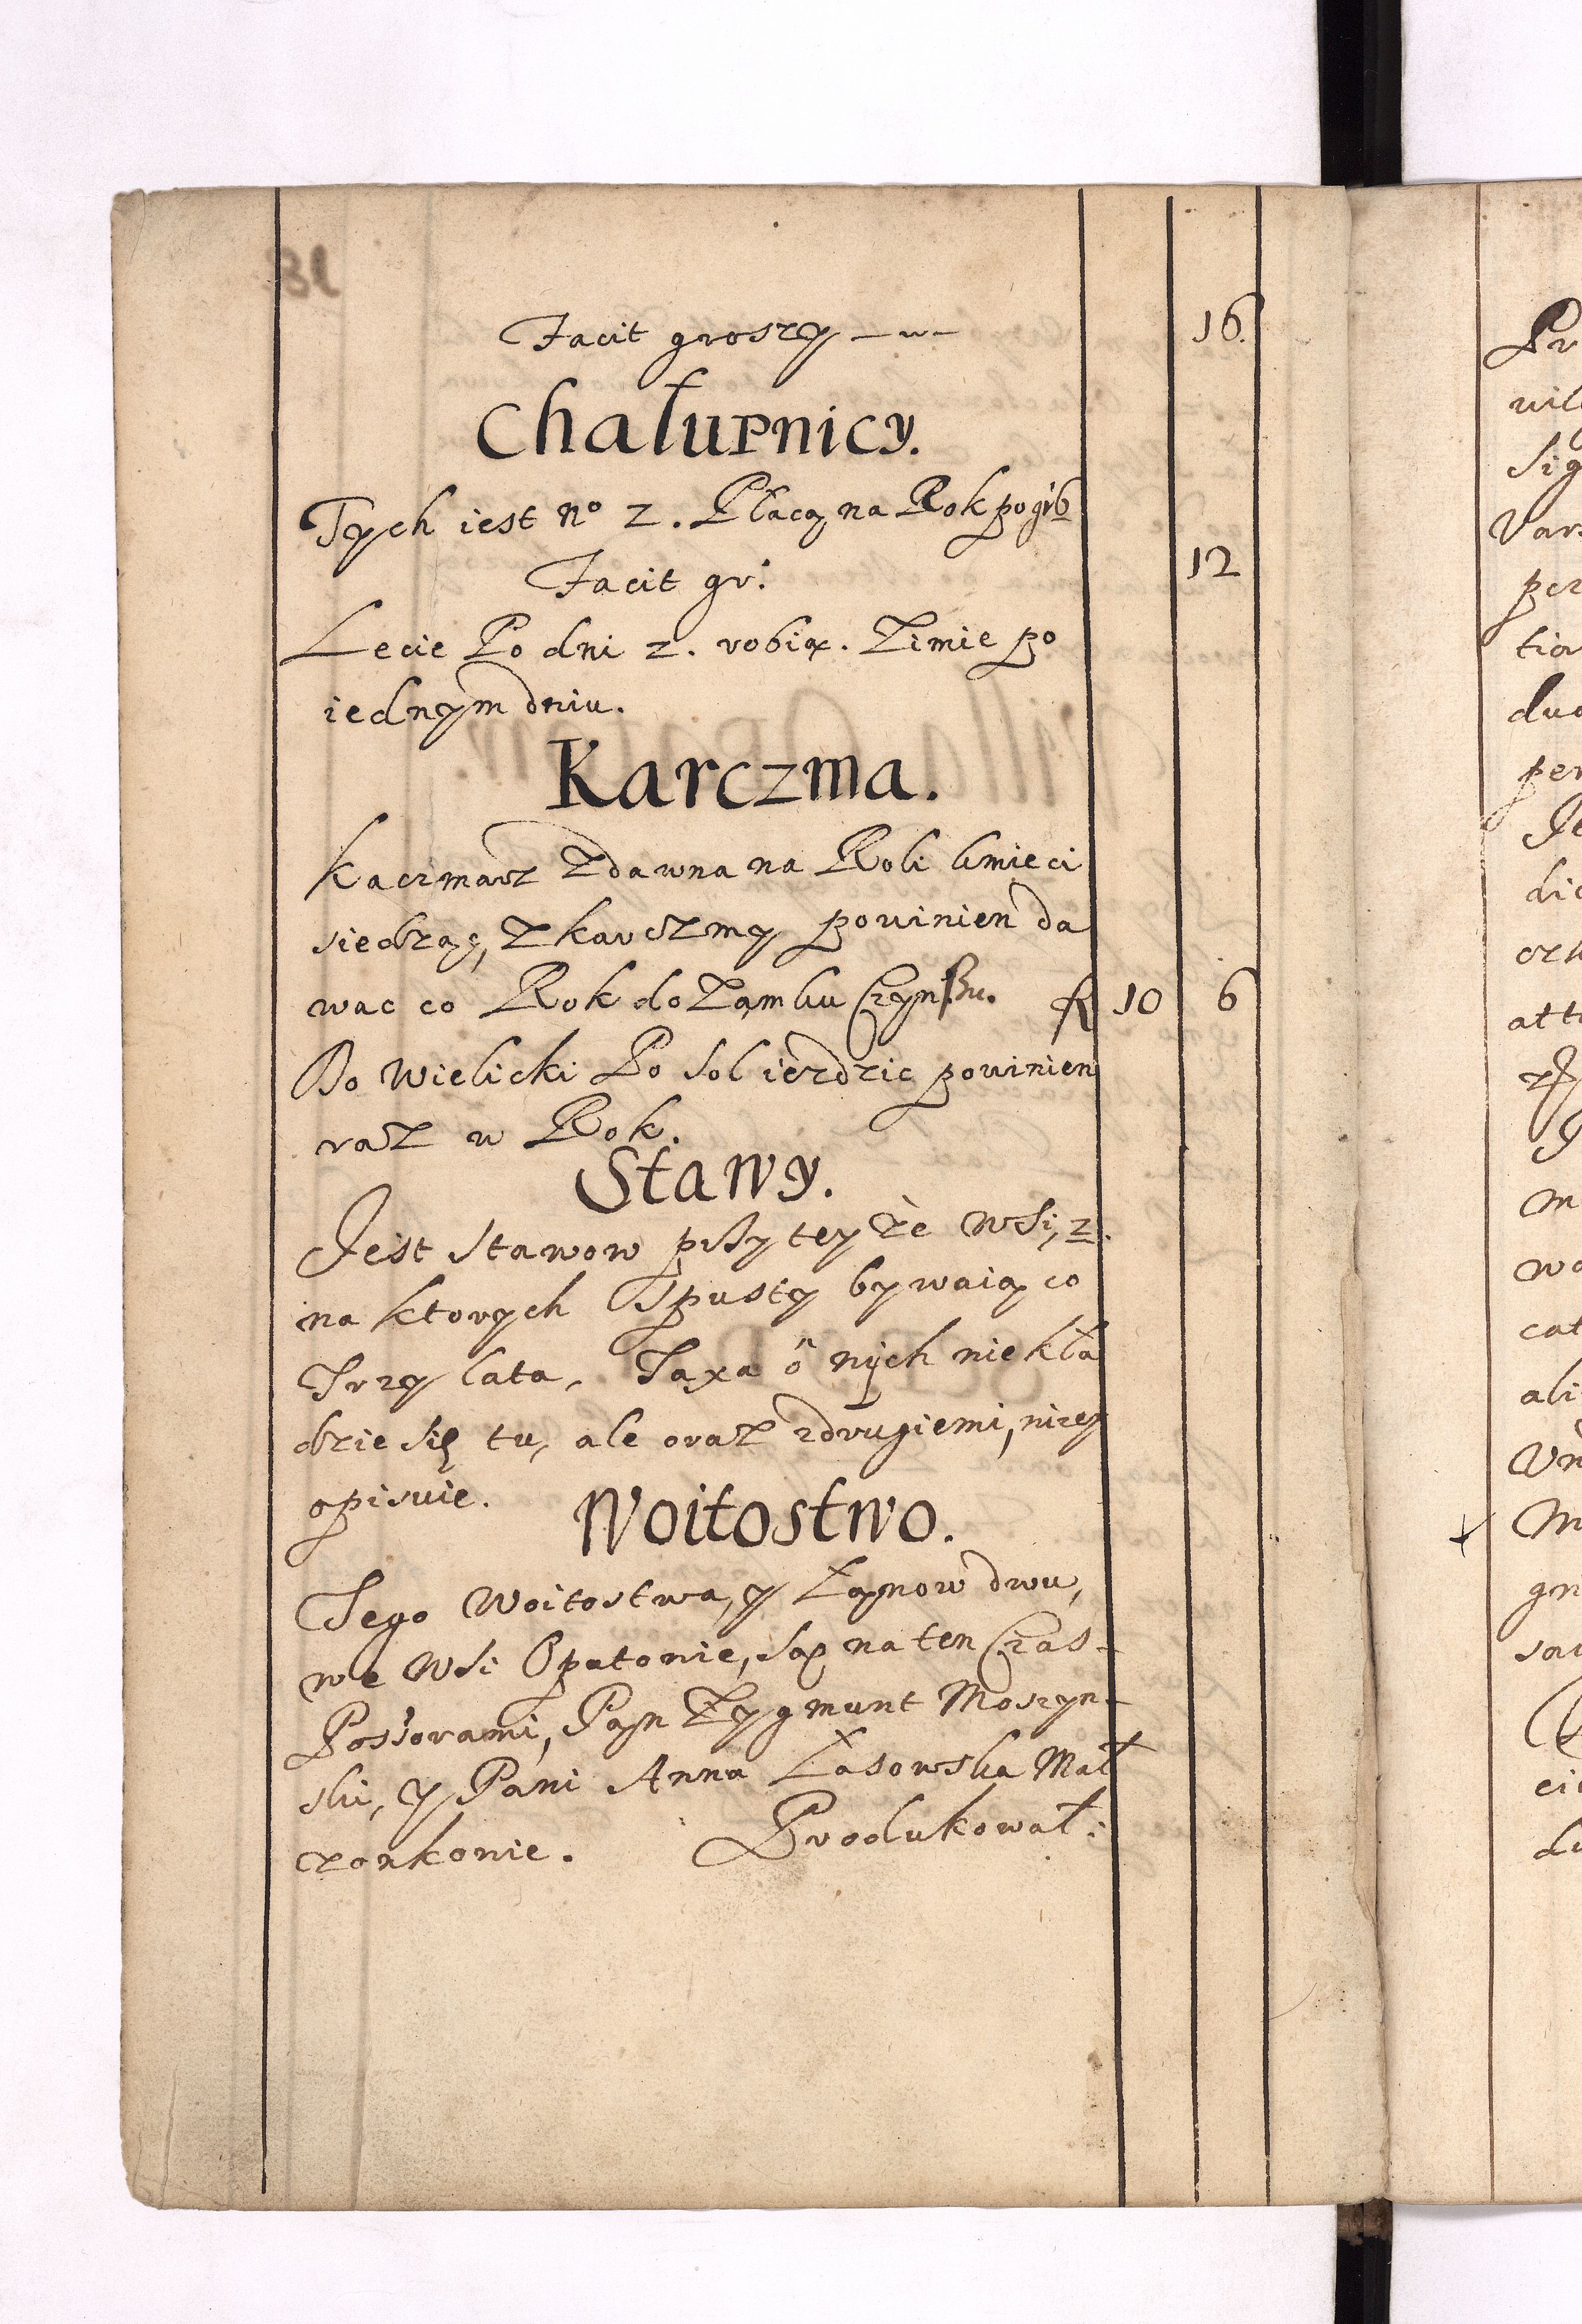 Facit groszy — 16.
Chałupnicy.
Tych iest No 2. Płacą na Rok po gr 6
Facit gr: 12
Lecie Po dni 2. robią. Zimie po
iednym dniu.
Karczma.
Kaczmarz Zdawna na Roli kmieci
siedząc, Z karczmy powinien da
wac co Rok do Zamku Czynszu. f 10 6
Do Wielicki Po Sol iezdzic powinien
raz w Rok.
Stawy.
Jest Stawow przy teyże wsi, 2.
na ktorych Spusty bywaią co
Trzy lata, Taxa o nych niekła
dzie się tu, ale oraz zdrugiemi, nizey
opisuie.
Woitostwo.
Tego Woitostwa, y Łanow dwu,
we Wsi Opatowie, są na ten Czas
Possorami, Pan Zygmunt Moszyn-
ski, y Pani Anna Łasowska Mał
zonkowie. Produkował:
Pr
vill
Sig
Var
per
tio
duo
per
Je
dic
att
m
wo
cat
ali
Vn
M
gn
sau
ei
du